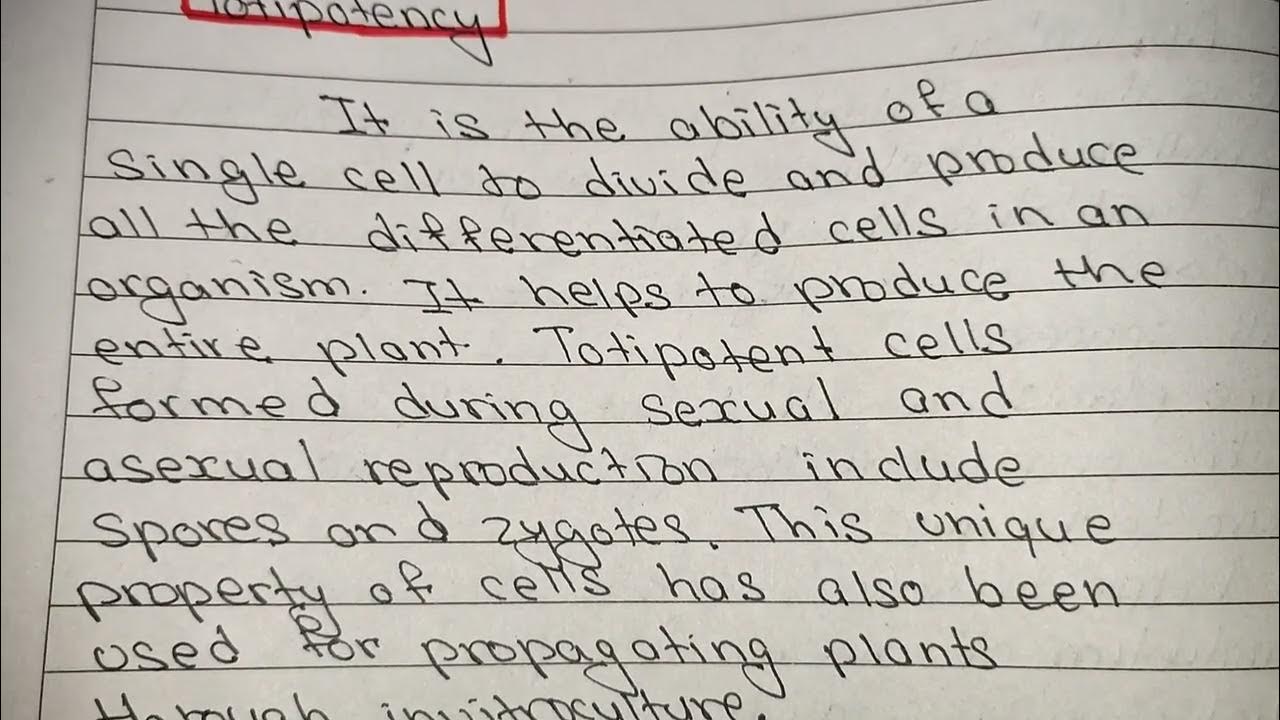 Totipotency
It is the ability of a
single cell to divide and produce
all the differentiated cells in an
organism. It helps to produce the
entire plant. Totipotent cells
formed during sexual and
asexual reproduction include
spores and zygotes. This unique
property of cells has also been
used for propagating plants
through invitroculture.